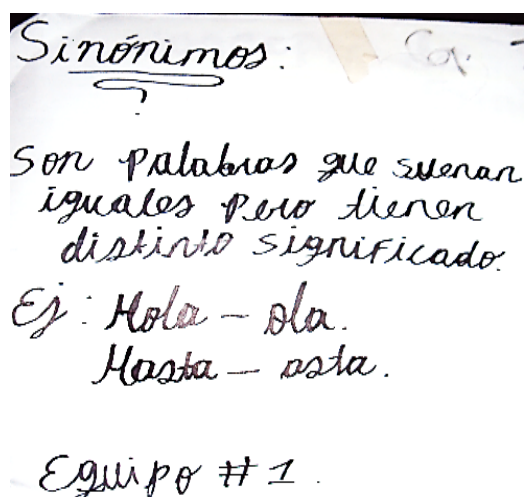 Sinónimos:
Son palabras que suenan
iguales pero tienen
distinto significado.
Ej: Hola – ola.
Hasta – asta.
Equipo # 1.